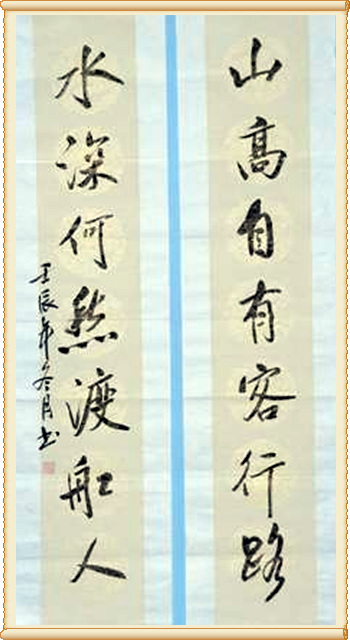 山高自有客行路
水深何愁渡船人
壬辰年冬月书